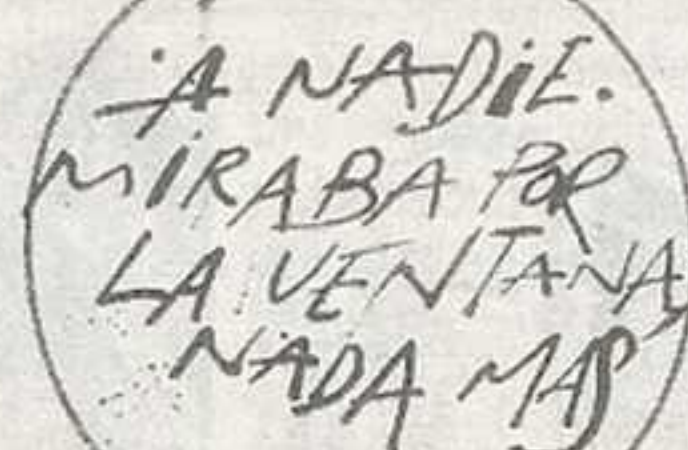 A NADIE.
MIRABA POR
LA VENTANA,
NADA MAS